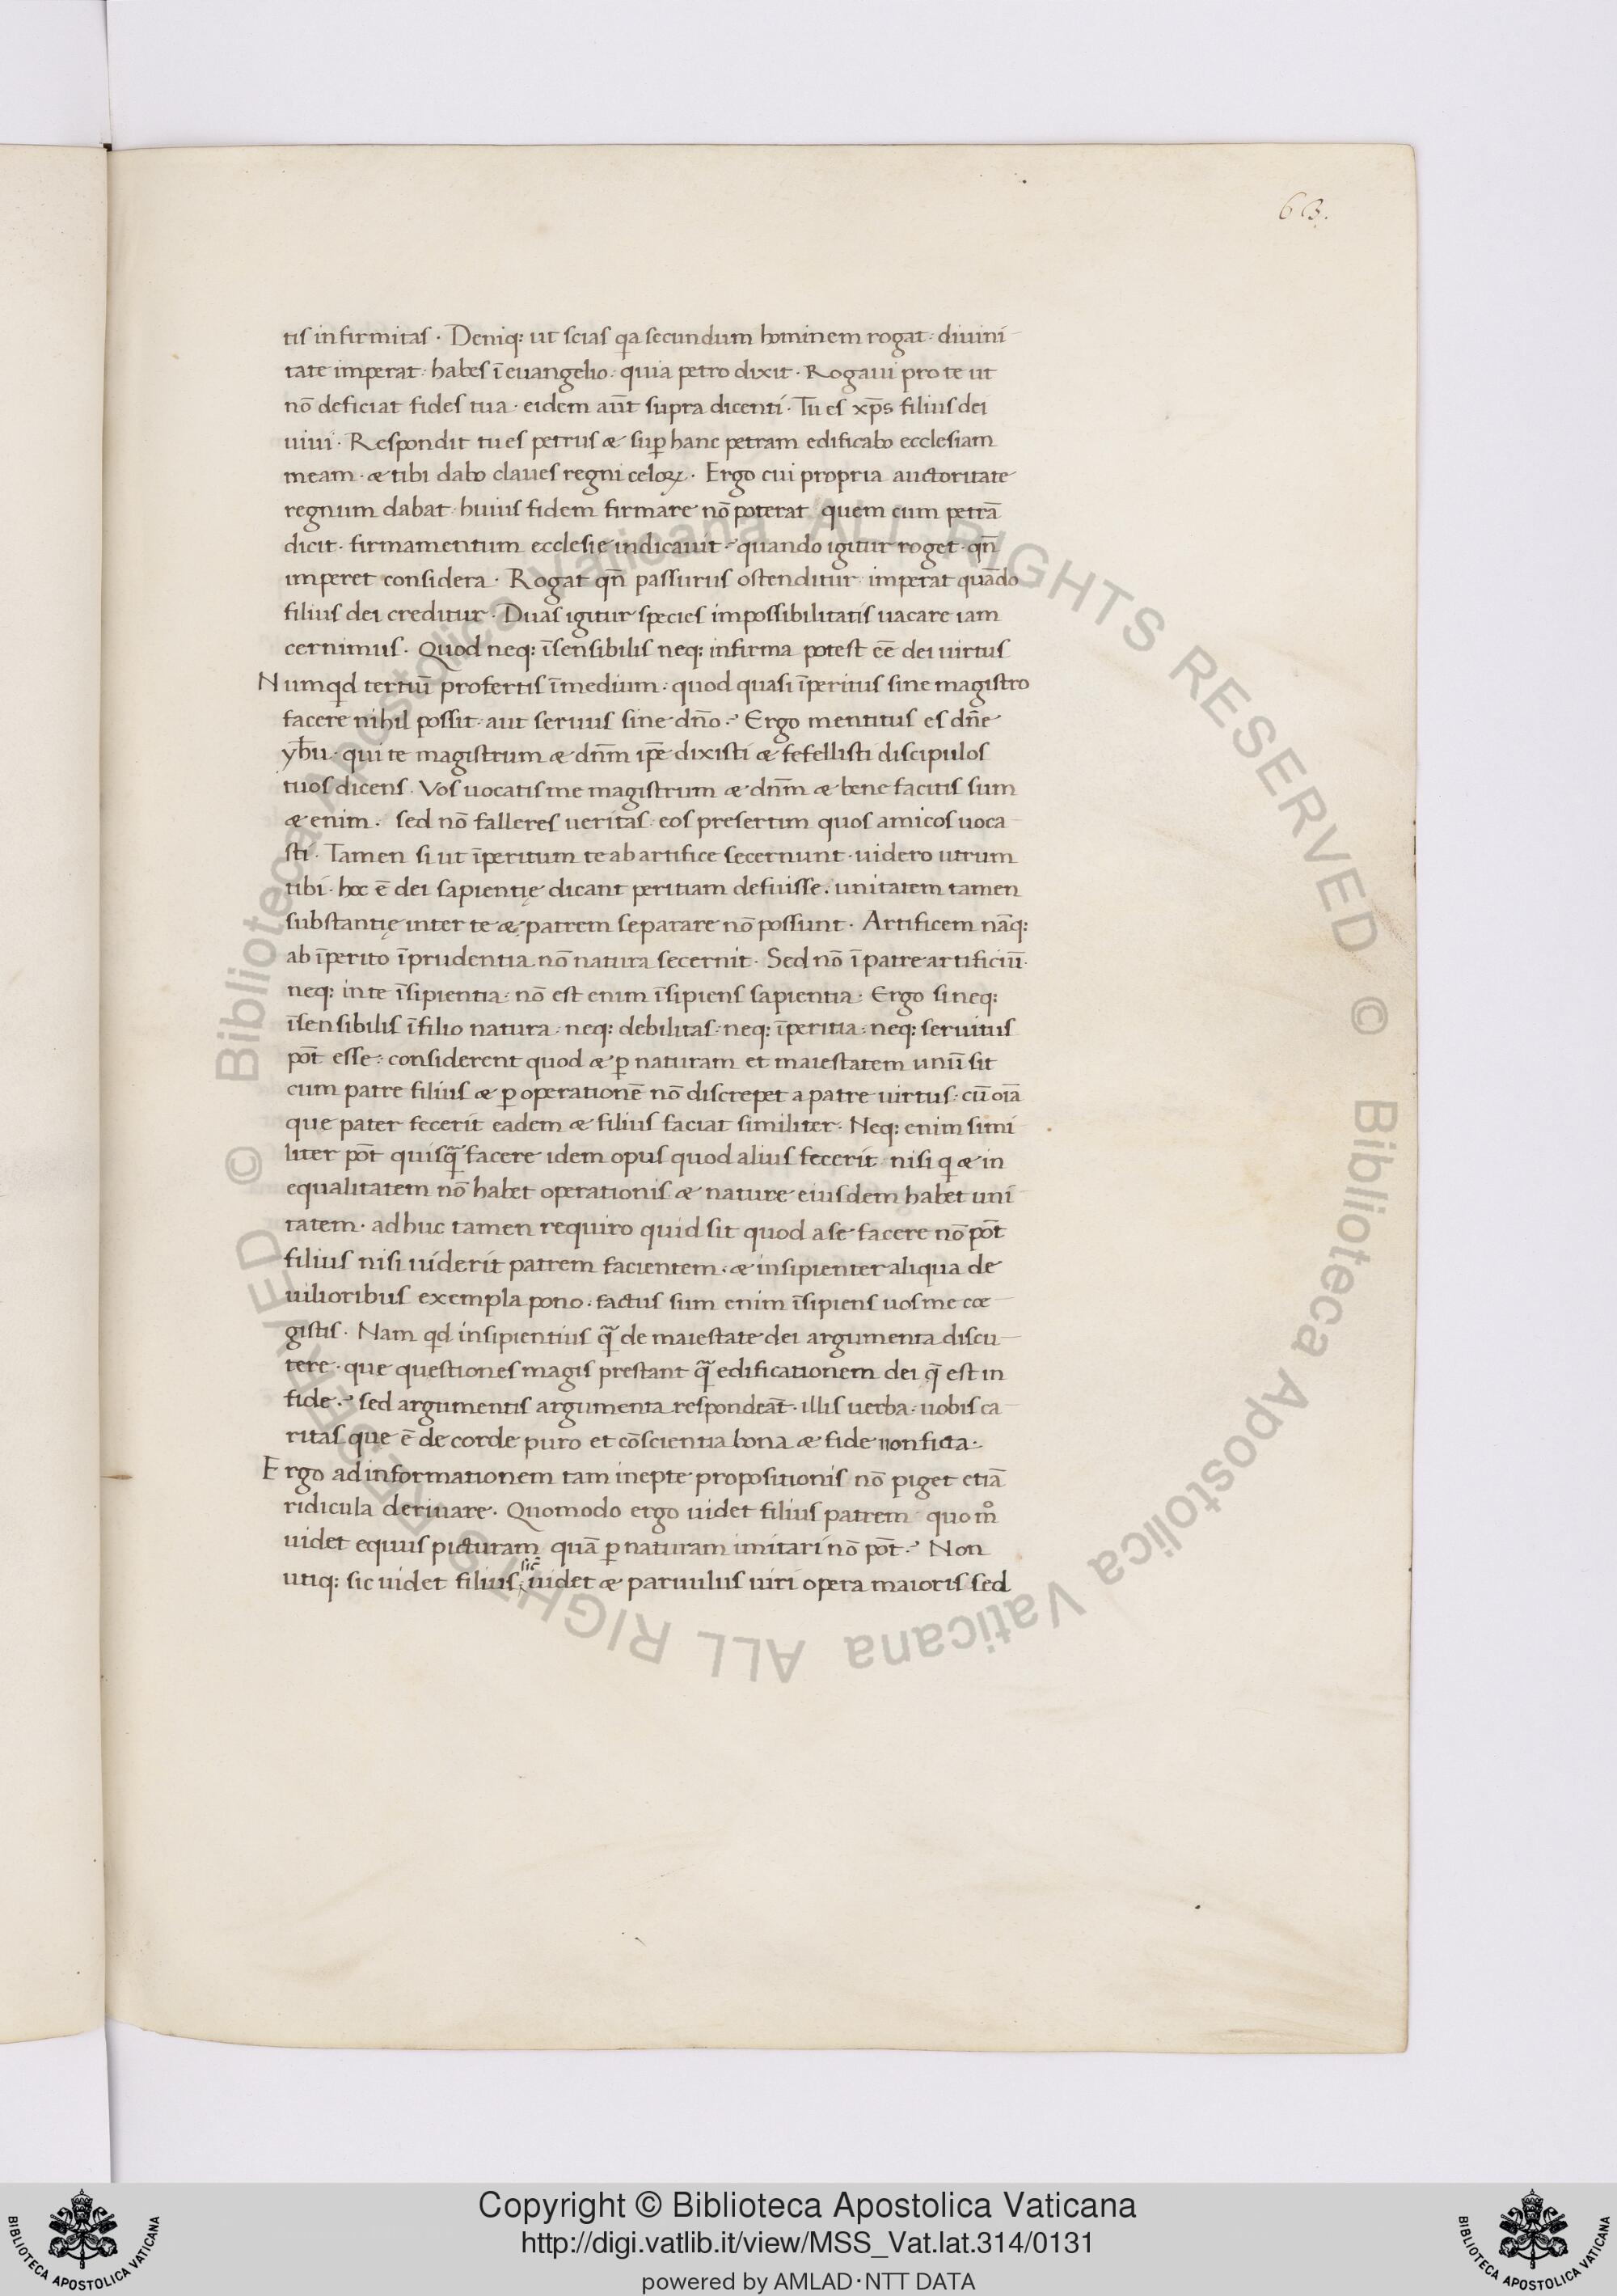 63.
tis infirmitas · Deniq: ut scias qa secundum hominem rogat · diuini
tate imperat · habes ī euangelio · quia petro dixit · Rogaui pro te ut
nō deficiat fides tua · eidem aūt supra dicenti · Tu es xp̄s filius dei
uiui · Respondit tu es petrus & sup hanc petram edificabo ecclesiam
meam · & tibi dabo claues regni celoꝝ · Ergo cui propria auctoritate
regnum dabat · huius fidem firmare nō poterat quem cum petrā
dicit · firmamentum ecclesie indicauit · quando igitur roget · qn̄
imperet considera · Rogat qn̄ passurus ostenditur · imperat quādo
filius dei creditur · Duas igitur species impossibilitatis uacare iam
cernimus · Quod neq: īsensibilis neq: infirma potest eē dei uirtus
Numqd tertiū profertis ī medium · quod quasi īperitus sine magistro
facere nihil possit · aut seruus sine dn̄o · Ergo mentitus es dn̄e
yħu · qui te magistrum & dn̄m ip̄e dixisti & fefellisti discipulos
tuos dicens · Vos uocatis me magistrum & dn̄m & bene facitis sum
& enim · sed nō falleres ueritas · eos presertim quos amicos uoca
sti · Tamen si ut īperitum te ab artifice secernunt · uidero utrum
tibi · hoc ē dei sapientię dicant peritiam defuisse · unitatem tamen
substantię inter te & patrem separare nō possunt · Artificem nāq:
ab īperito īprudentia nō natura secernit · Sed nō ī patre artificiū ·
neq: in te īsipientia · nō est enim īsipiens sapientia · Ergo si neq:
īsensibilis ī filio natura · neq: debilitas · neq: īperitia · neq: seruitus
pōt esse · considerent quod & ꝑ naturam et maiestatem unū sit
cum patre filius & ꝑ operationē nō discrepet a patre uirtus · cū oīa
que pater fecerit eadem & filius faciat similiter · Neq: enim simi
liter pōt quisq̄ facere idem opus quod alius fecerit · nisi q & in
equalitatem nō habet operationis & nature eiusdem habet uni
tatem · adhuc tamen requiro quid sit quod a se facere nō pōt
filius nisi uiderit patrem facientem · & insipienter aliqua de
uilioribus exempla pono · factus sum enim īsipiens uos me coe
gistis · Nam qd insipientius q̄ de maiestate dei argumenta discu
tere · que questiones magis prestant q̄ edificationem dei q̄ est in
fide · sed argumentis argumenta respondeāt · illis uerba · uobis ca
ritas que ē de corde puro et cōscientia bona & fide non ficta ·
Ergo ad informationem tam inepte propositionis nō piget etiā
ridicula deriuare · Quomodo ergo uidet filius patrem quo m̊
uidet equus picturam quā ꝑ naturam imitari nō pōt · Non
sic̄
utiq: sic uidet filius · uidet & paruulus uiri opera maioris sed
© Biblioteca Apostolica Vaticana ALL RIGHTS RESERVED © Biblioteca Apostolica Vaticana ALL RIGHTS RESERVED
Copyright © Biblioteca Apostolica Vaticana
http://digi.vatlib.it/view/MSS_Vat.lat.314/0131
powered by AMLAD·NTT DATA
BIBLIOTECA APOSTOLICA VATICANA
BIBLIOTECA APOSTOLICA VATICANA